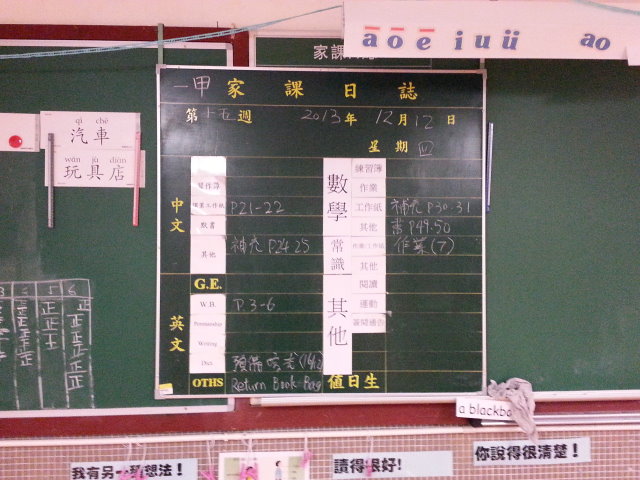 ā ō ē i u ü ao
家課
一甲 家課日誌
第十五週 2013年12月12日
星期四
qì chē
汽車
wán jù diàn
玩具店
中文
習作簿
作業工作紙 P21-22
默書
其他 補充 P24-25
英文
G.E.
W.B. P.3-6
Penmanship
Writing
Dict.
OTHS Return Book Bag
數學
練習簿
作業
工作紙 補充 P30-31
其他 書 P49-50
常識
作業/工作紙 作業(7)
其他
其他
閱讀
運動
簽閱通告
值日生
3 4 5 6
正正正正正
a blackbo
我有另一 想法！
讀得很好!
你說得很清楚！